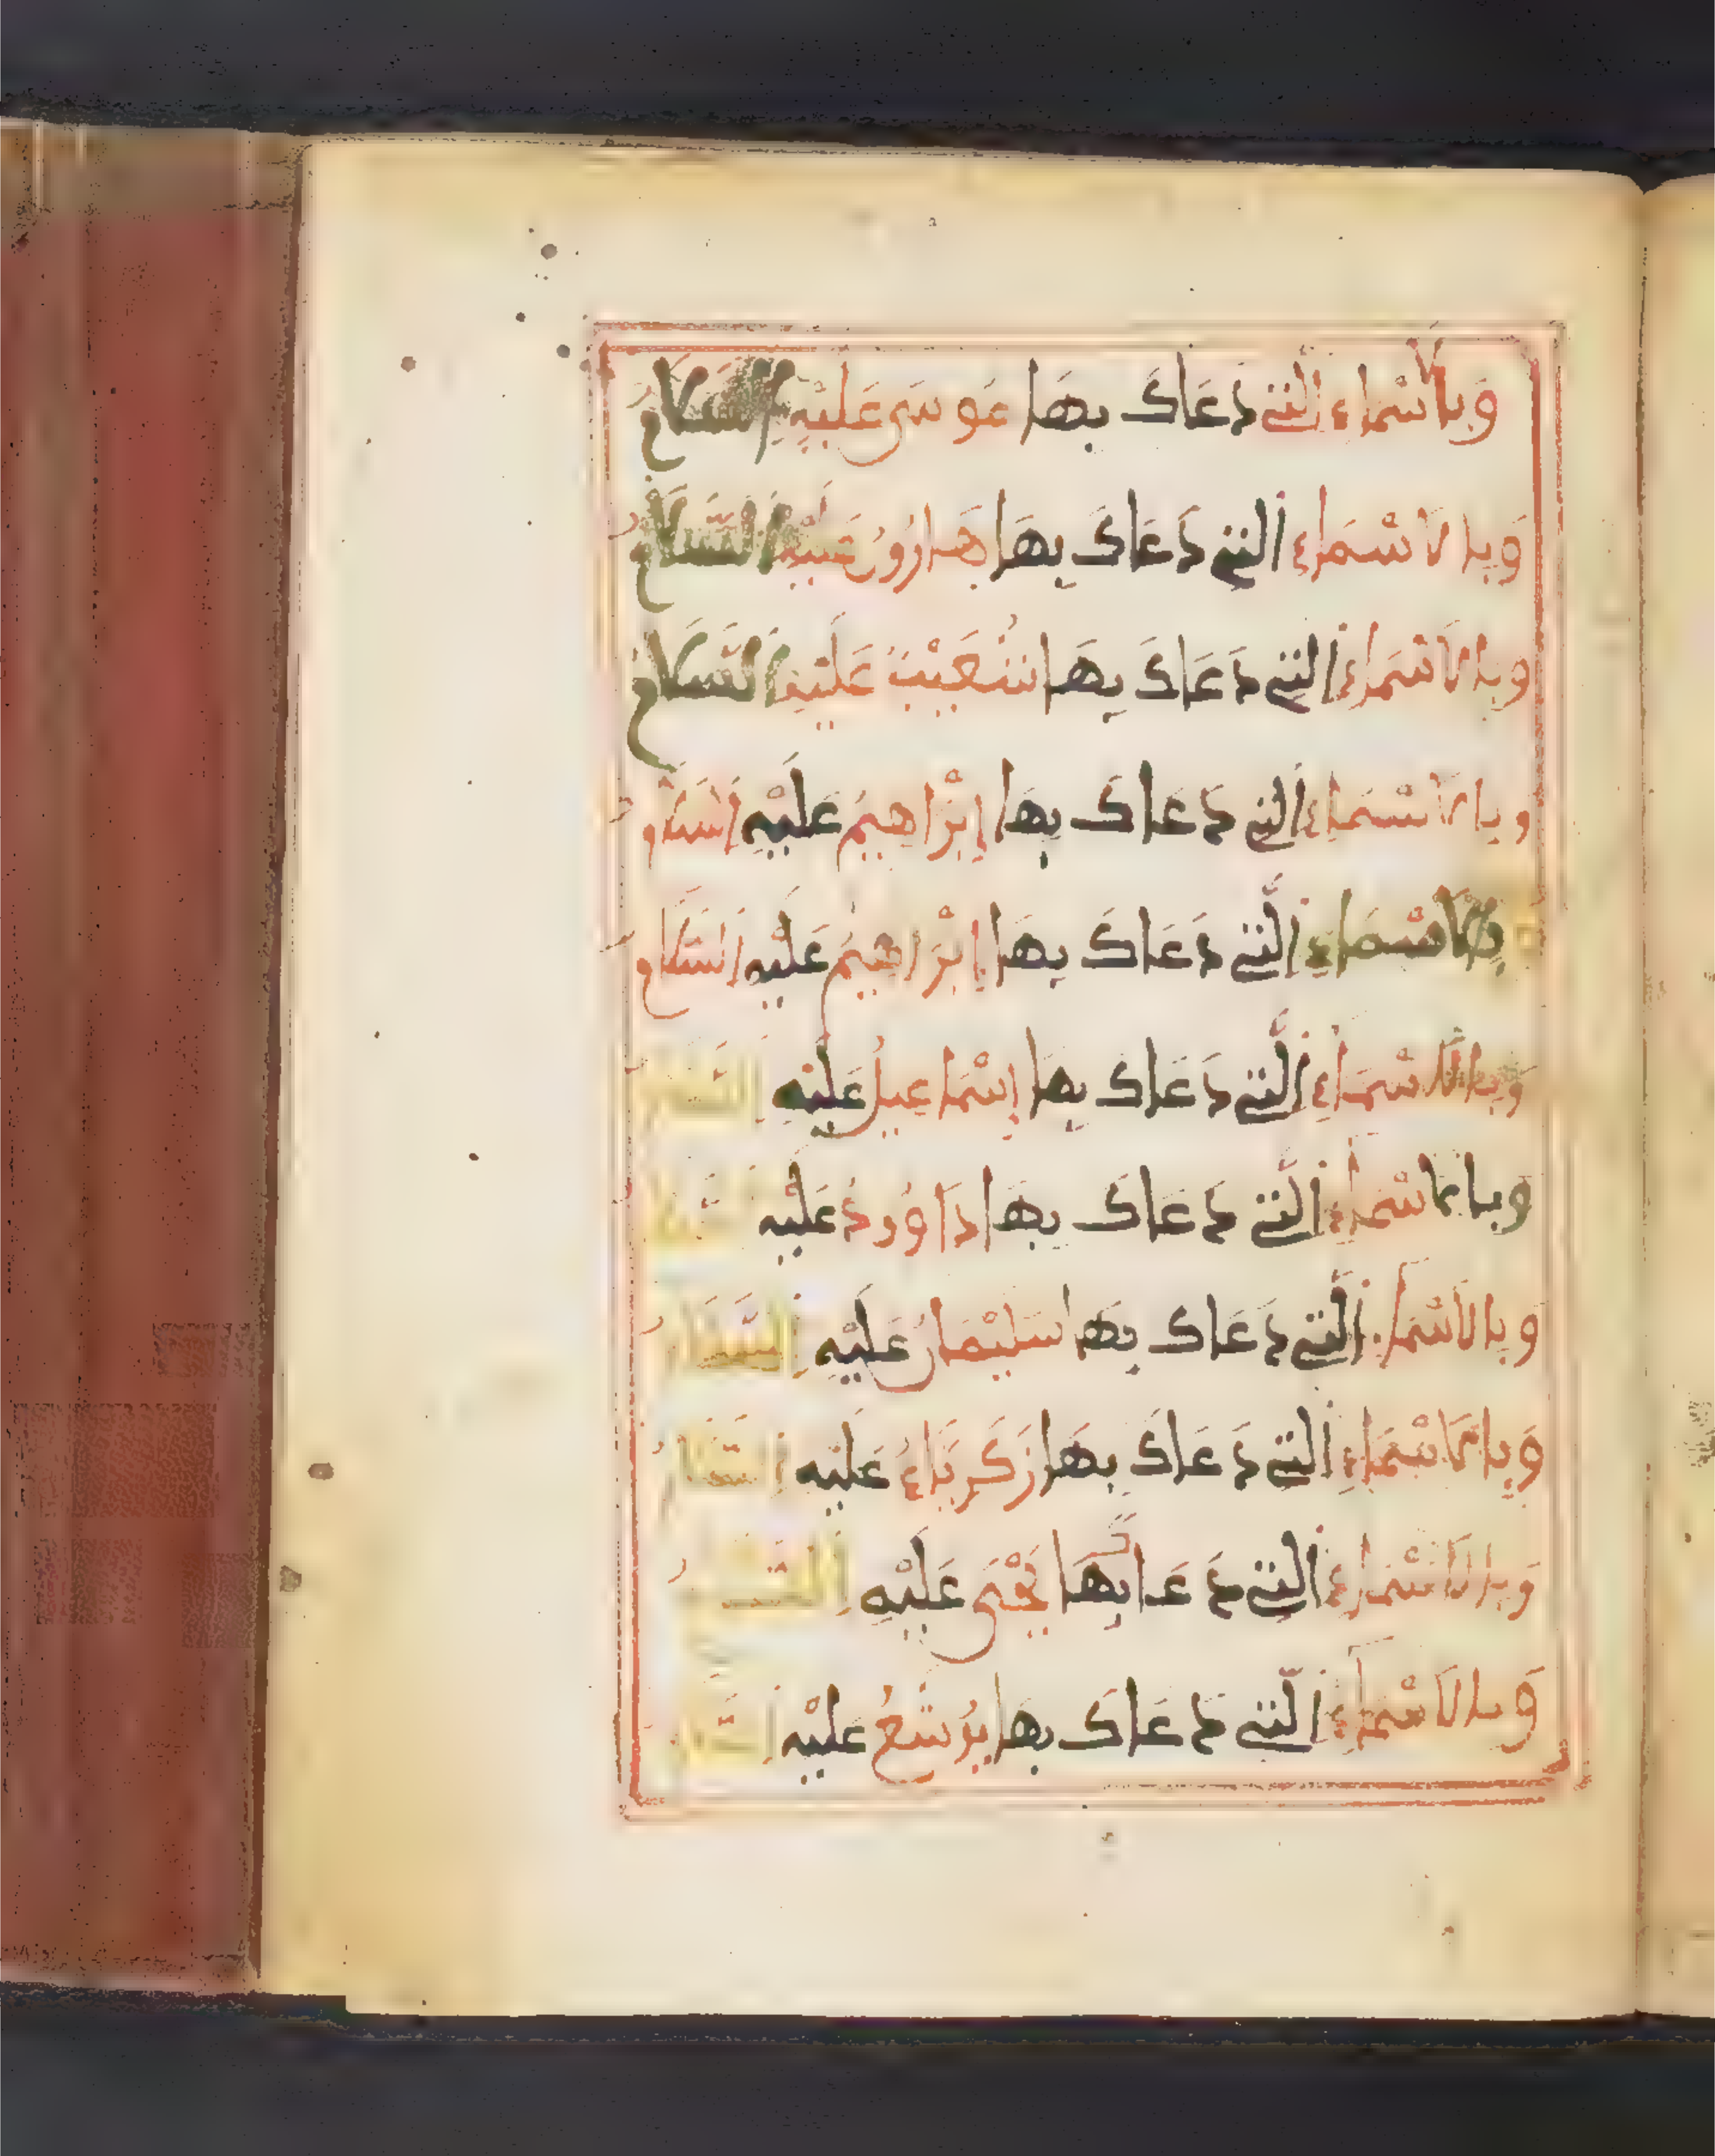 وَبِالَاسْمَاءِ الَّتِي دَعَاكَ بِهَا مُوسَى عَلَيْهِ السَّلَامُ
وَبِالَاسْمَاءِ الَّتِي دَعَاكَ بِهَا هَارُونُ عَلَيْهِ السَّلَامُ
وَبِالَاسْمَاءِ الَّتِي دَعَاكَ بِهَا شُعَيْبٌ عَلَيْهِ السَّلَامُ
وَبِالَاسْمَاءِ الَّتِي دَعَاكَ بِهَا إِبْرَاهِيمُ عَلَيْهِ السَّلَامُ
بِالَاسْمَاءِ الَّتِي دَعَاكَ بِهَا إِبْرَاهِيمُ عَلَيْهِ السَّلَامُ
وَبِالَاسْمَاءِ الَّتِي دَعَاكَ بِهَا إِسْمَاعِيلُ عَلَيْهِ السَّلَامُ
وَبِالَاسْمَاءِ الَّتِي دَعَاكَ بِهَا دَاوُودُ عَلَيْهِ
وَبِالَاسْمَاءِ الَّتِي دَعَاكَ بِهَا سُلَيْمَانُ عَلَيْهِ السَّلَامُ
وَبِالَاسْمَاءِ الَّتِي دَعَاكَ بِهَا زَكَرِيَّاءُ عَلَيْهِ السَّلَامُ
وَبِالَاسْمَاءِ الَّتِي دَعَاكَ بِهَا يَحْيَى عَلَيْهِ السَّلَامُ
وَبِالَاسْمَاءِ الَّتِي دَعَاكَ بِهَا يُوشَعُ عَلَيْهِ